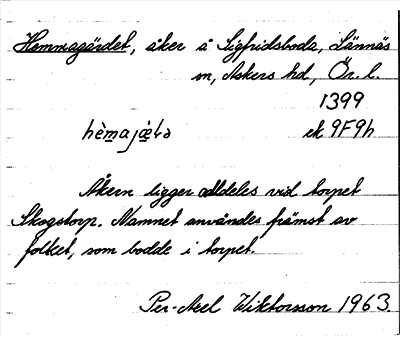 Hemmagärdet, åker å Sigfridsboda, Lännäs
sn, Askers hd, Ör. l.
1399
hèmajǽtə ek 9F9h
Åkern ligger alldeles vid torpet
Skogstorp. Namnet användes främst av
folket, som bodde i torpet.
Per-Axel Wiktorsson 1963.